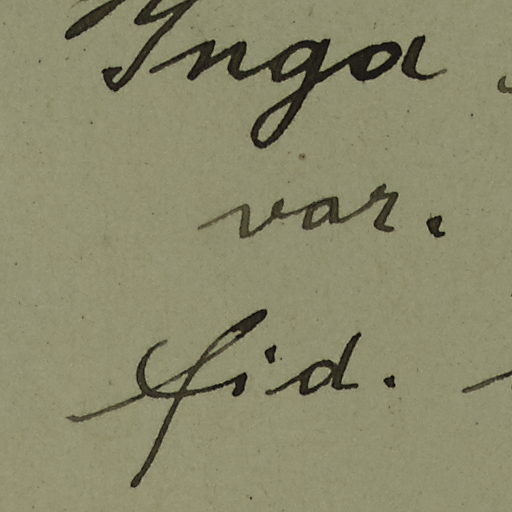 Ynga
var.
fid.